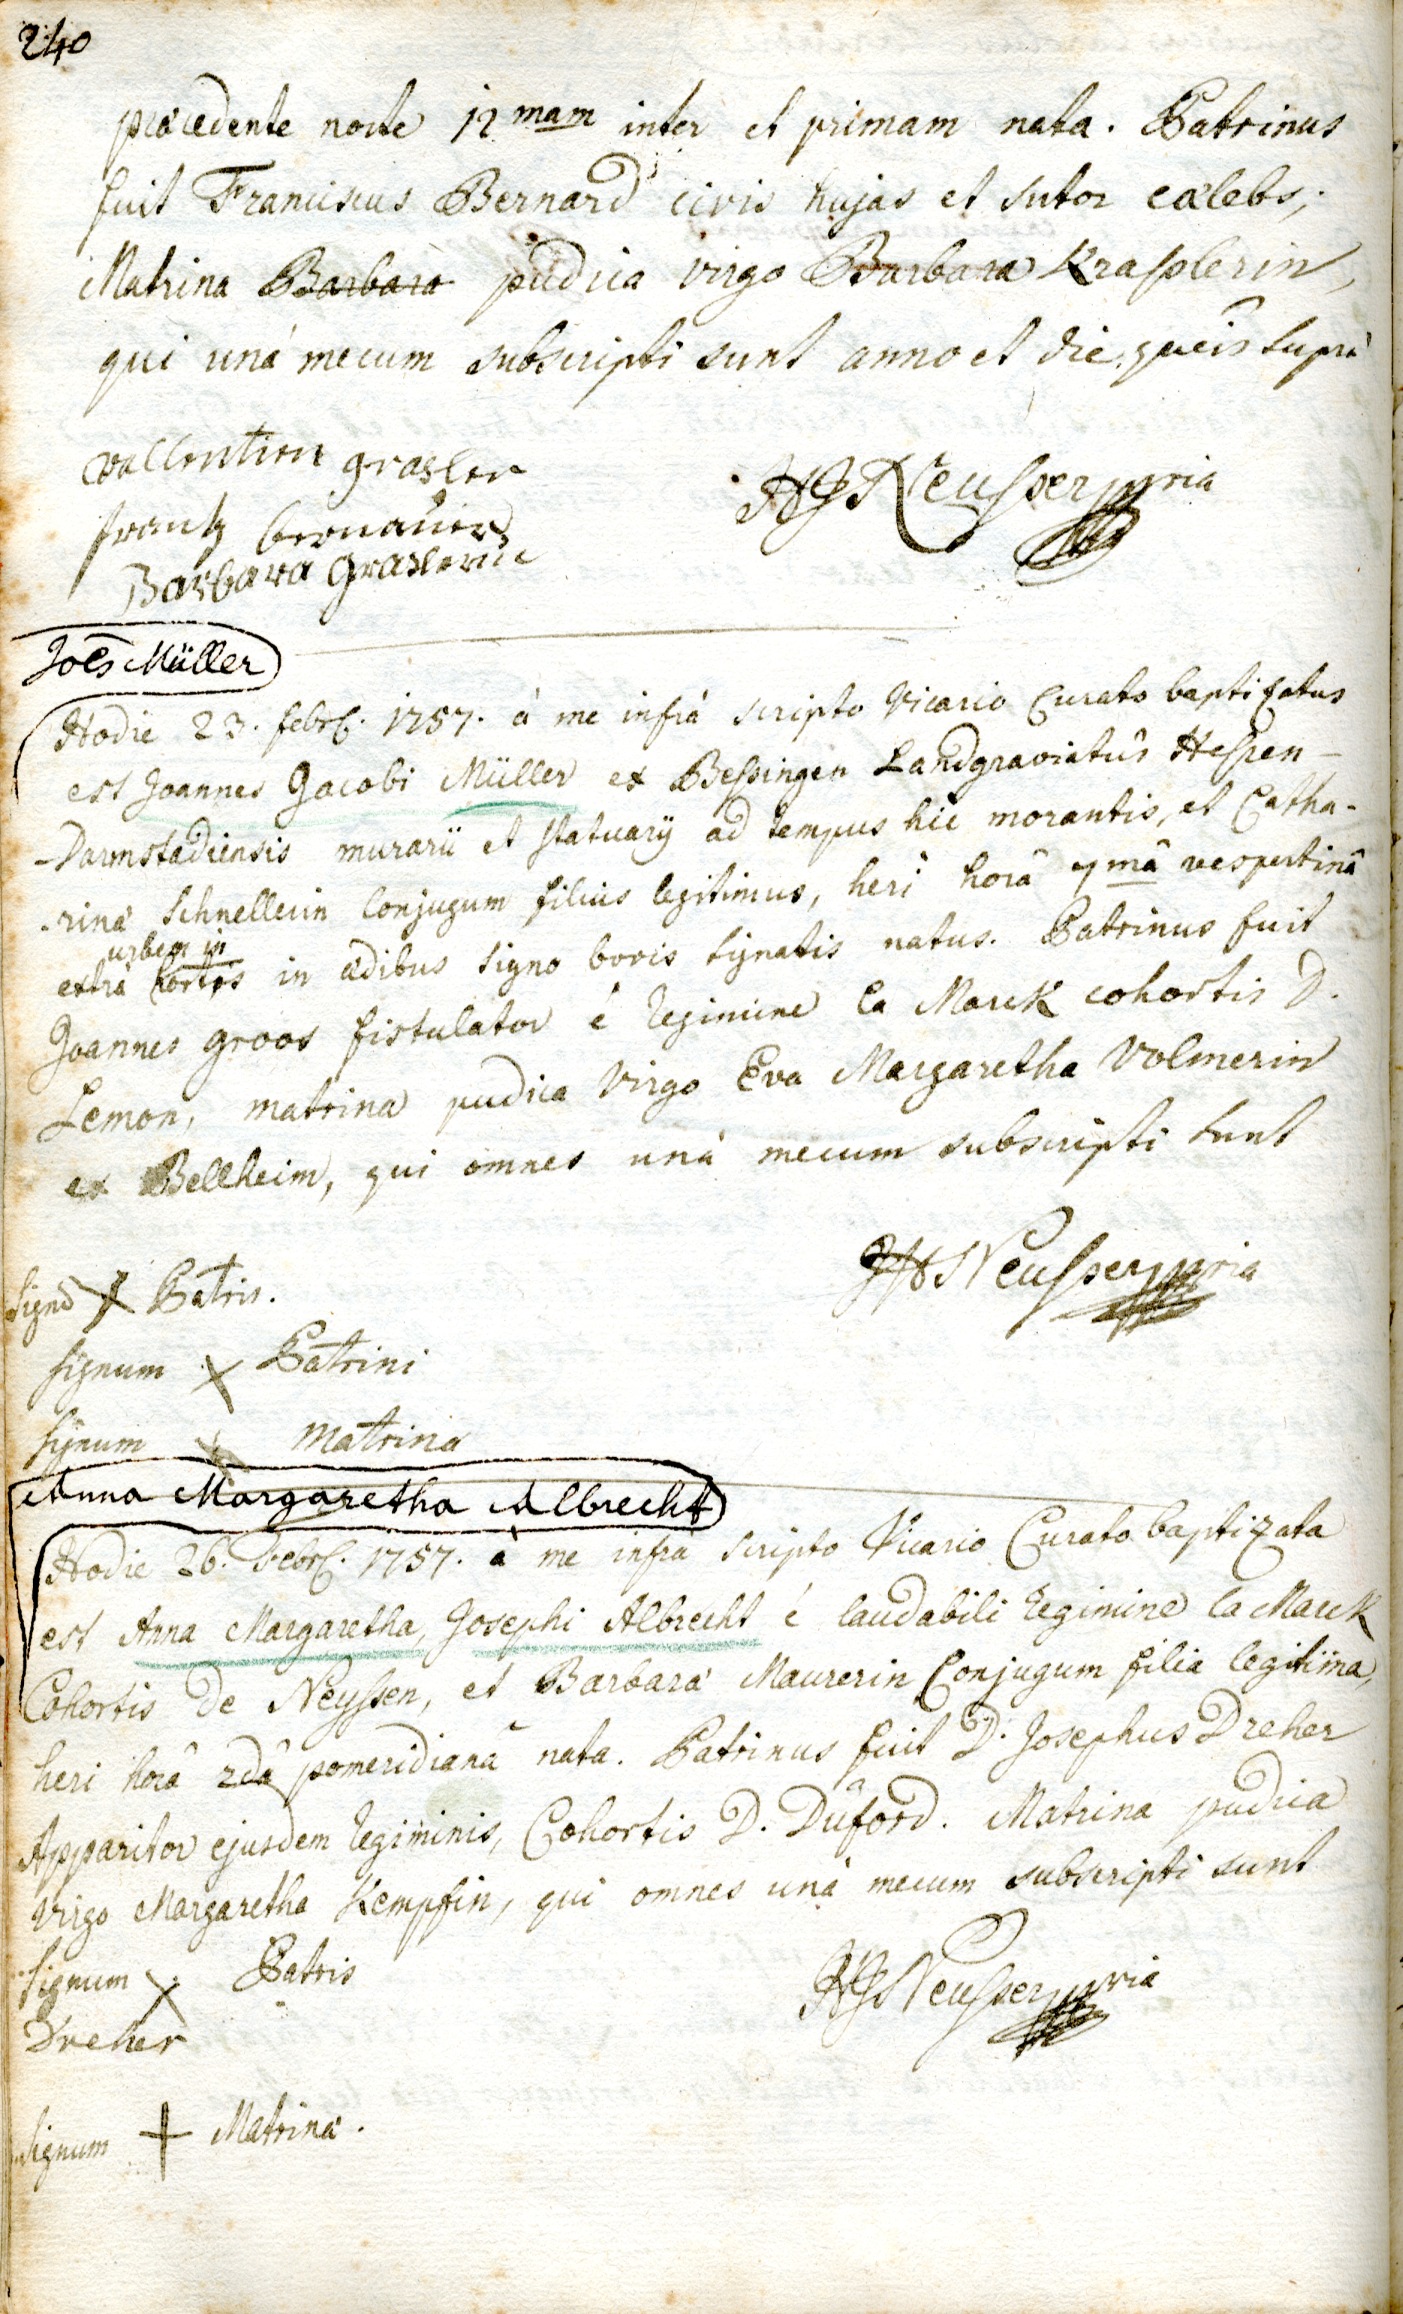 240
præcedente nocte 12 mam inter et primam nata. Patrinus
fuit Franciscus Bernard civis hujas et sutor cælebs,
Matrina Barbara pudica virgo Barbara Krasslerin,
qui unà mecum subscripti sunt anno et die, queîs supra
vallentien grasler
frantz bernauer
Barbara Graslerin
HJ Neusser mpria
Joes Müller
Hodie 23. febr. 1757. à me infrà scripto Vicario Curato baptizatus
est Joannes Jacobi Müller ex Bessingen Landgraviatûs Hessen-
-Darmstadiensis murarii et statuarij ad tempus hic morantis, et Catha-
-rinæ Schnellerin Conjugum filius legitimus, heri horâ 7mâ vespertinâ
urbem in
extrà hortos in ædibus signo bovis signatis natus. Patrinus fuit
Joannes Groos fistulator è regimine la Marck cohortis D.
Lemon, matrina pudica Virgo Eva Margaretha Volmerin
ex Bellheim, qui omnes unà mecum subscripti sunt
HJ Neusser mpria
Signū X Patris.
signum X Patrini
signum X matrinæ
Anna Margaretha Albrecht
Hodie 26. Febr. 1757. à me infrà scripto Vicario Curato baptizata
est Anna Margaretha, Josephi Albrecht è laudabili regimine la Marck
Cohortis de Neyssen, et Barbaræ Maurerin Conjugum filia legitima,
heri horâ 2dâ pomeridianâ nata. Patrinus fuit D. Josephus Dreher
Apparitor ejusdem regiminis, Cohortis D. Duford. Matrina pudica
Virgo Margaretha Kempfin, qui omnes unà mecum subscripti sunt
Signum X Patris
HJ Neusser mpria
Dreher
Signum + Matrinæ.